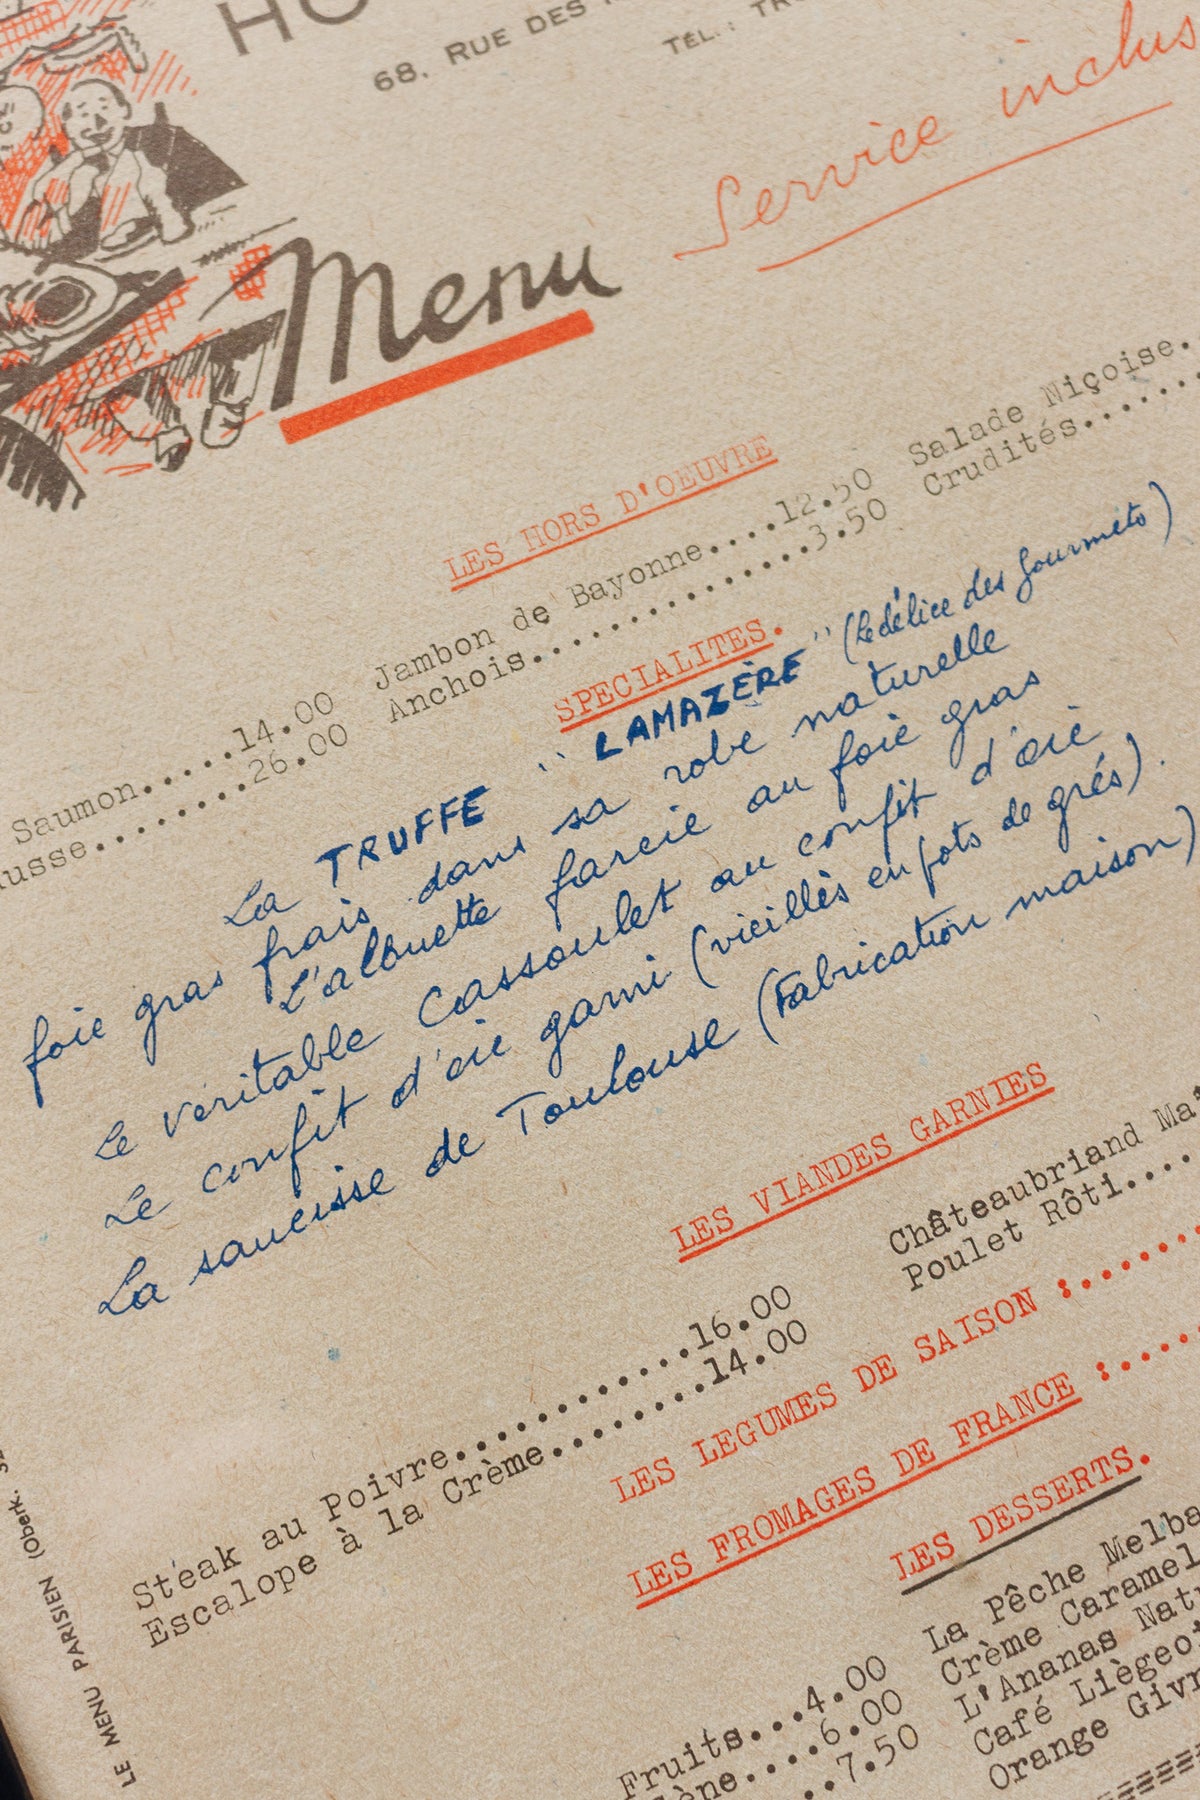 HO
68, RUE DES
TÉL. : TR
Service inclus
Menu
LES HORS D'OEUVRE
Saumon.....14.00 Jambon de Bayonne....12.50 Salade Niçoise.
usse.......26.00 Anchois.............3.50 Crudités.......
SPECIALITES.
La TRUFFE "LAMAZÈRE" (le délice des gourmets)
foie gras frais dans sa robe naturelle
L'alouette farcie au foie gras
Le véritable Cassoulet au confit d'oie
Le confit d'oie garni (vieillès en pots de grés).
La saucisse de Toulouse (Fabrication maison)
LES VIANDES GARNIES
Steak au Poivre..............16.00 Châteaubriand Ma
Escalope à la Crème.........14.00 Poulet Rôti....
LES LEGUMES DE SAISON :.......
LES FROMAGES DE FRANCE :.....
LES DESSERTS.
Fruits...4.00 La Pêche Melba
ène....6.00 Crème Caramel
..7.50 L'Ananas Nat
Café Liègeo
Orange Givr
LE MENU PARISIEN (Oberk.